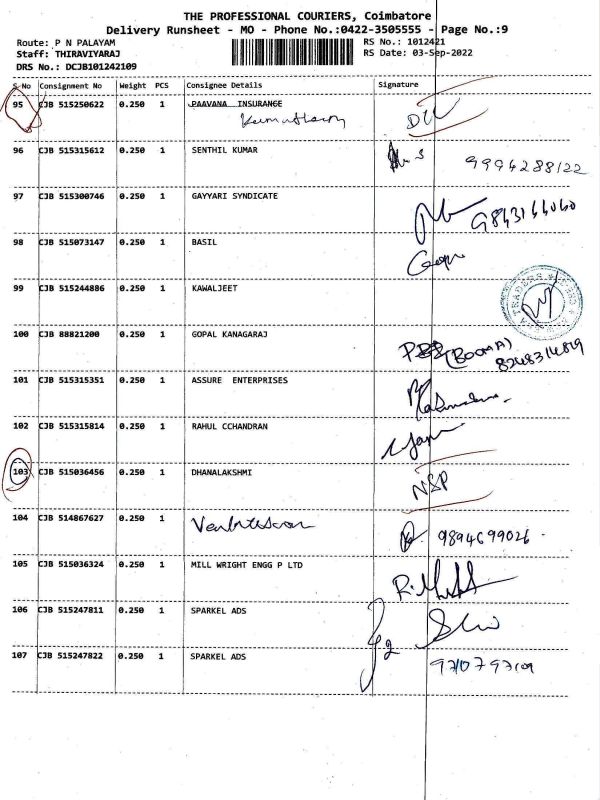 THE PROFESSIONAL COURIERS, Coimbatore
Delivery Runsheet - MO - Phone No.:0422-3505555 - Page No.:9
Route: P N PALAYAM RS No.: 1012421
Staff: THIRAVIYARAJ RS Date: 03-Sep-2022
DRS No.: DCJB101242109
S.No Consignment No Weight PCS Consignee Details Signature
95 CJB 515250622 0.250 1 PAAVANA INSURANCE
96 CJB 515315612 0.250 1 SENTHIL KUMAR 9994288122
97 CJB 515300746 0.250 1 GAYYARI SYNDICATE
98 CJB 515073147 0.250 1 BASIL
99 CJB 515244886 0.250 1 KAWALJEET
TRADERS
100 CJB 88821200 0.250 1 GOPAL KANAGARAJ
(BOOMA)
8248314819
101 CJB 515315351 0.250 1 ASSURE ENTERPRISES
102 CJB 515315814 0.250 1 RAHUL CCHANDRAN
103 CJB 515036456 0.250 1 DHANALAKSHMI
NSP
104 CJB 514867627 0.250 1 9894699026
105 CJB 515036324 0.250 1 MILL WRIGHT ENGG P LTD
106 CJB 515247811 0.250 1 SPARKEL ADS
107 CJB 515247822 0.250 1 SPARKEL ADS